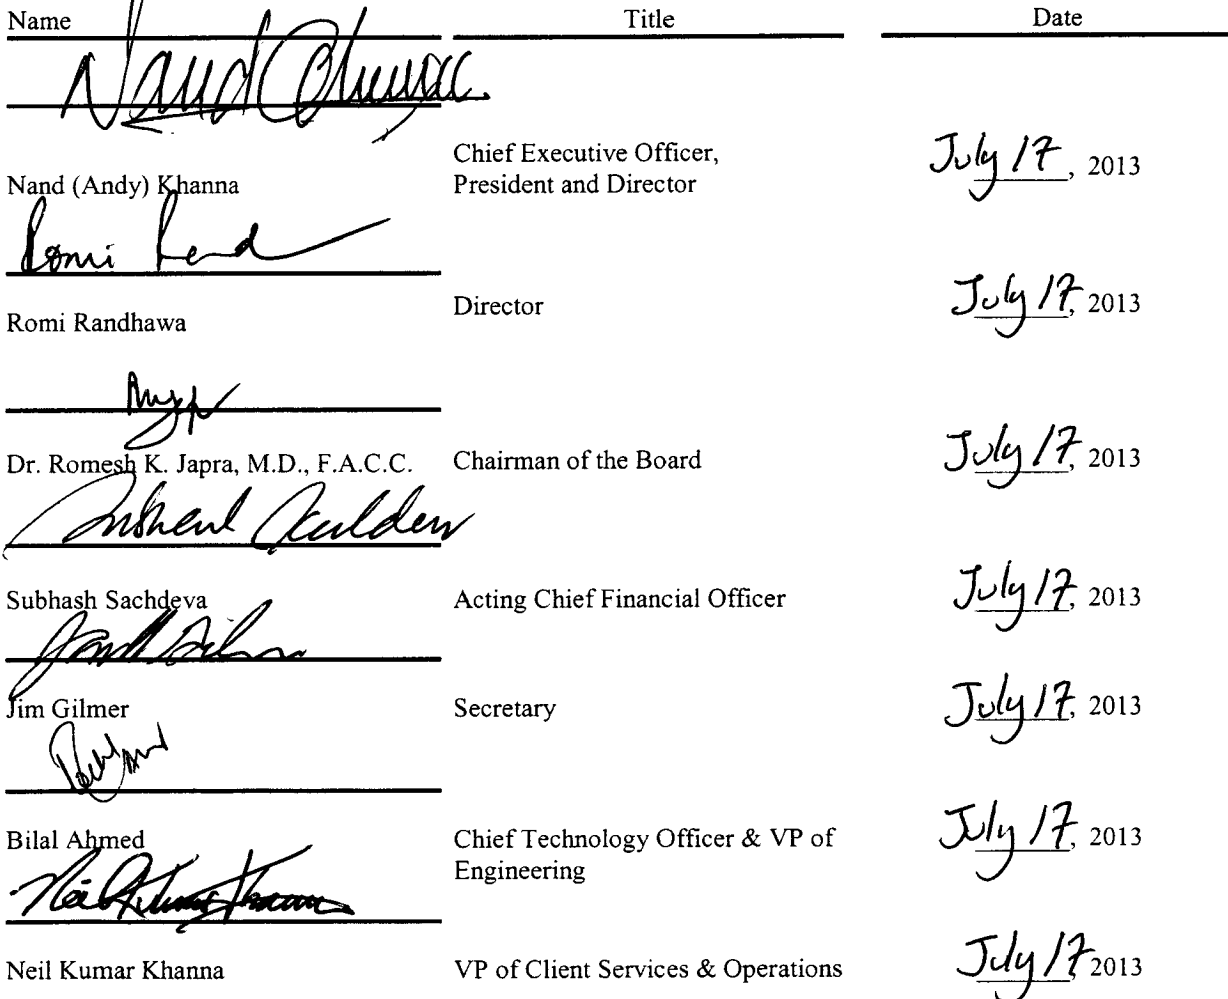 Name Title Date
Nand Khanna
Chief Executive Officer,
Nand (Andy) Khanna President and Director July 17, 2013
Romi Rand
Romi Randhawa Director July 17, 2013
Dr. Romesh K. Japra, M.D., F.A.C.C. Chairman of the Board July 17, 2013
Subhash Sachdeva Acting Chief Financial Officer July 17, 2013
Jim Gilmer Secretary July 17, 2013
Bilal Ahmed Chief Technology Officer & VP of July 17, 2013
Engineering
Neil Kumar Khanna
Neil Kumar Khanna VP of Client Services & Operations July 17 2013